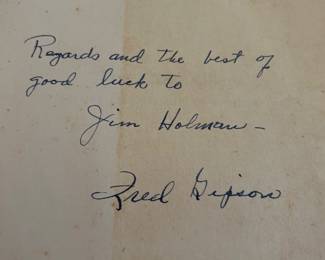 Regards and the best of
good luck to
Jim Holman –
Fred Gipson